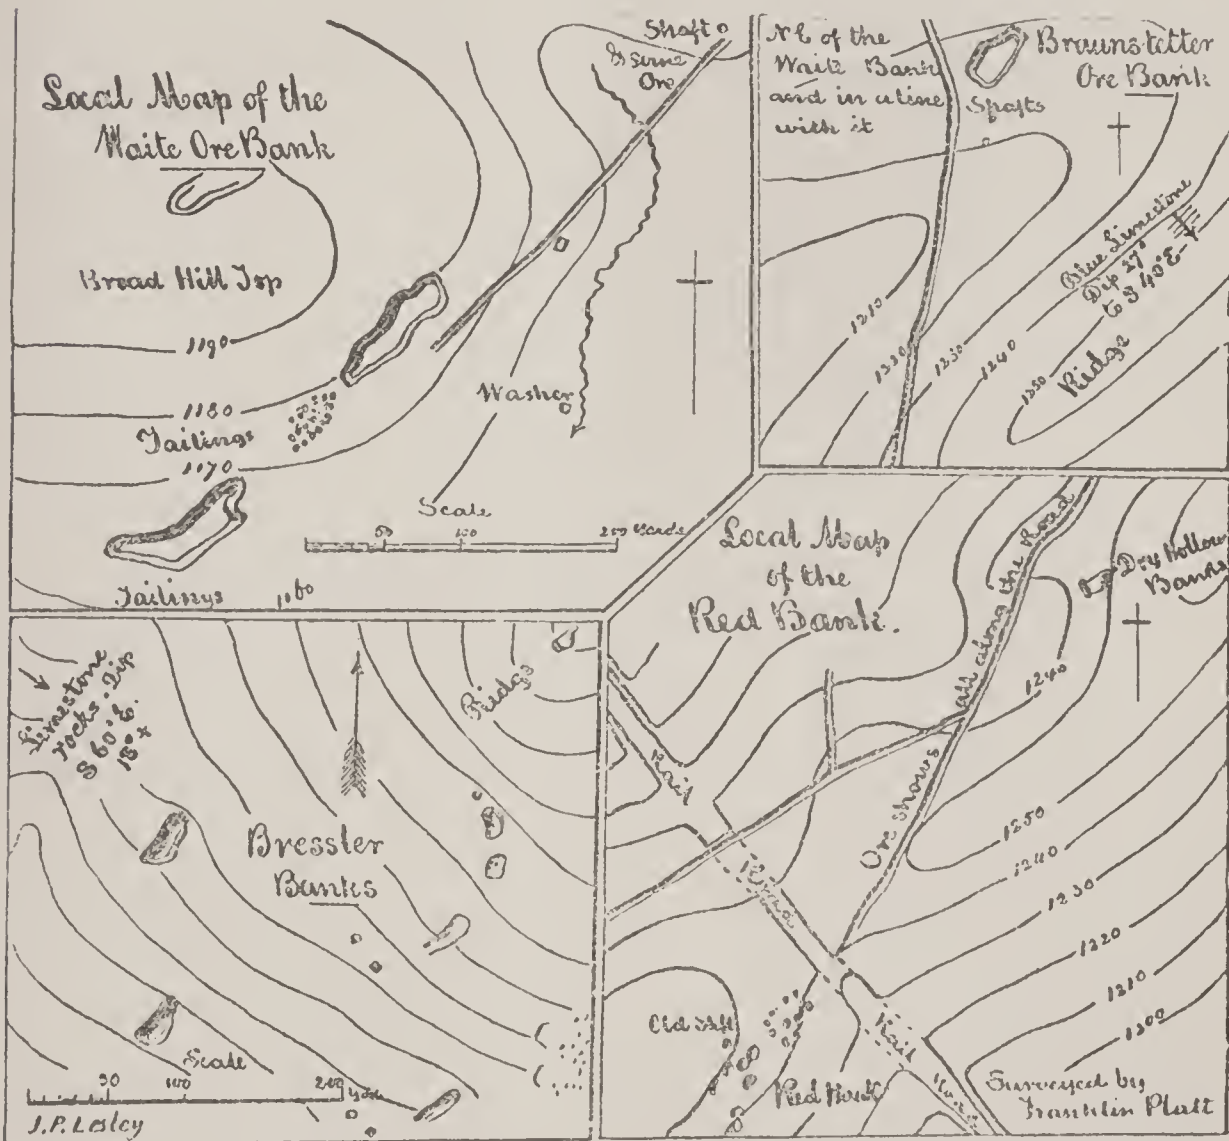 Local Map of the
Waite Ore Bank
Broad Hill Top
1190
1180
Tailings
1170
Tailings
1160
Shaft
& some
Ore
Washer
Scale
50 100 200 Yards
N E of the
Waite Bank
and in a line
with it
Braunstetter
Ore Bank
Shafts
Blue Limestone
Dip 27°
to S 40° E
Ridge
1210
1220
1230
1240
1250
Limestone
rocks. Dip
S 60° E.
18°
Ridge
Bressler
Banks
Scale
50 100 200 Yds
J.P. Lesley
Local Map
of the
Red Bank.
Ore shows all along the Road
Dry Hollow
Banks
1240
1250
1240
1230
1220
1210
1200
Rail Road
Rail Road
Old Shft
Red Bank
Surveyed by
Franklin Platt